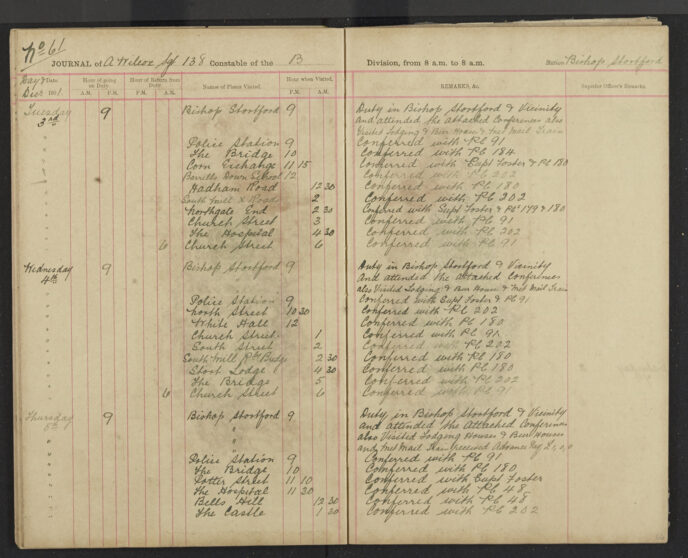 No 61
JOURNAL of A Wilcox Sgt 138 Constable of the B Division, from 8 a.m. to 8 a.m. Station Bishop Stortford
Day & Date Hour of going on Duty Hour of Return from Duty Names of Places Visited. Hour when Visited. REMARKS, &c. Superior Officer's Remarks.
Decr 1901. A.M. P.M. P.M. A.M. P.M. A.M.
Tuesday 9 Bishop Stortford 9 Duty in Bishop Stortford & Vicinity
3rd and attended the attached Conferences also
Visited Lodging & Beer House & met Mail Train
Police Station 9 Conferred with Pc 91
The Bridge 10 Conferred with Pc 184
Corn Exchange 11 15 Conferred with Supt Foster & Pc 180
Down School 12 Conferred with Pc 202
Hadham Road 12 30 Conferred with Pc 180
South Mill X Road 2 Conferred with Pc 202
Northgate End 2 30 Conferred with Supt Foster & Pcs 179 & 180
Church Street 3 Conferred with Pc 91
The Hospital 4 30 Conferred with Pc 202
6 Church Street 6 Conferred with Pc 91
Wednesday 9 Bishop Stortford 9 Duty in Bishop Stortford & Vicinity
4th and attended the attached Conferences
also Visited Lodging & Beer House & met Mail Train
Police Station 9 Conferred with Supt Foster & Pc 91
North Street 10 30 Conferred with Pc 202
White Hall 12 Conferred with Pc 180
Church Street 1 Conferred with Pc 91
South Street 2 Conferred with Pc 202
South Mill Rd Bridge 2 30 Conferred with Pc 180
Stort Lodge 4 30 Conferred with Pc 180
The Bridge 5 Conferred with Pc 202
6 Church Street 6 Conferred with Pc 91
Thursday 9 Bishop Stortford 9 Duty in Bishop Stortford & Vicinity
5th and attended the Attached Conferences
also Visited Lodging Houses & Beer Houses
and met Mail Train received Advance
Police Station 9 Conferred with Pc 91
The Bridge 10 Conferred with Pc 180
Potter Street 11 10 Conferred with Supt Foster
The Hospital 11 30 Conferred with Pc 48
Bells Hill 12 30 Conferred with Pc 48
The Castle 1 30 Conferred with Pc 202